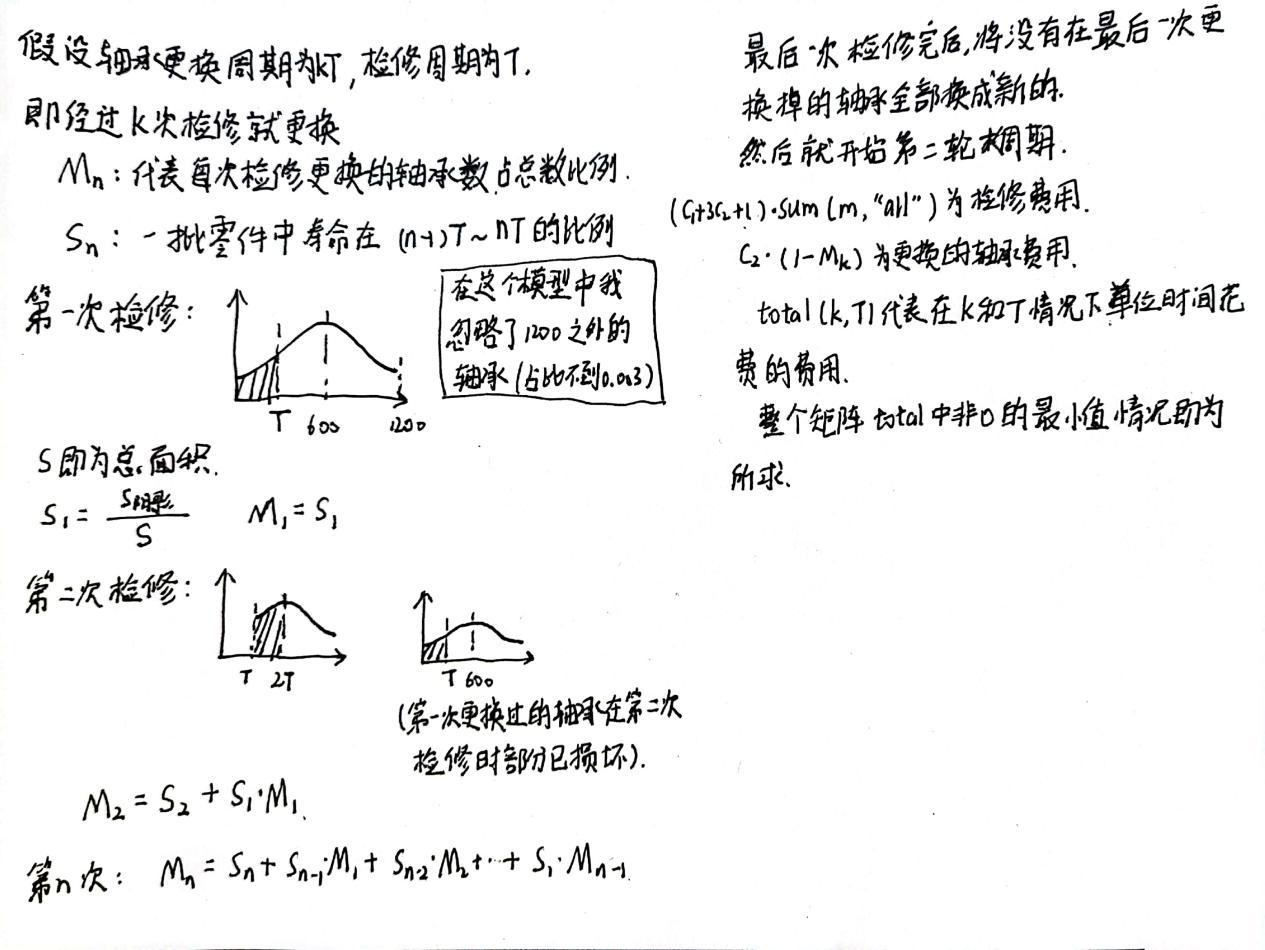 假设轴承更换周期为kT,检修周期为T.
即经过k次检修就更换
Mn:代表每次检修更换的轴承数占总数比例.
Sn:一批零件中寿命在 (n-1)T~nT的比例
第一次检修:
T 600 1200
在这个模型中我
忽略了1200之外的
轴承(占比不到0.003)
S即为总面积.
S₁ = S阴影/S M₁=S₁
第二次检修:
T 2T
T 600
(第一次更换过的轴承在第二次
检修时部分已损坏).
M₂ = S₂ + S₁·M₁.
第n次: Mn = Sn + Sn-1·M₁ + Sn-2·M₂+…+ S₁·Mn-1
最后一次检修完后,将没有在最后一次更
换掉的轴承全部换成新的.
然后就开始第二轮周期.
(C₁+3C₂+1)·sum(m,"all")为检修费用.
C₂·(1-Mk)为更换的轴承费用.
total(k,T)代表在k和T情况下单位时间花
费的费用.
整个矩阵total中非0的最小值情况即为
所求.